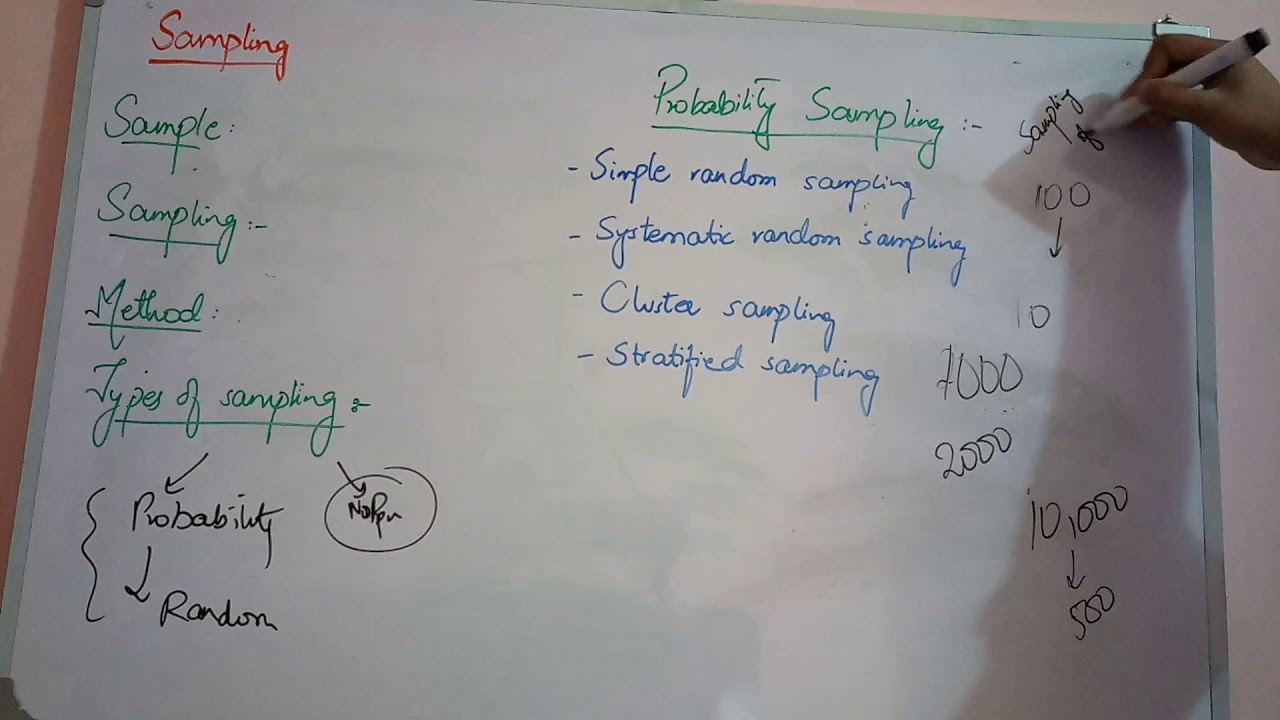 Sampling
Sample:
Sampling:-
Method:
Types of sampling:-
Probability
Random
Probability Sampling:-
- Simple random sampling
- Systematic random sampling
- Cluster sampling
- Stratified sampling
Sampling
100
10
1000
2000
10,000
500